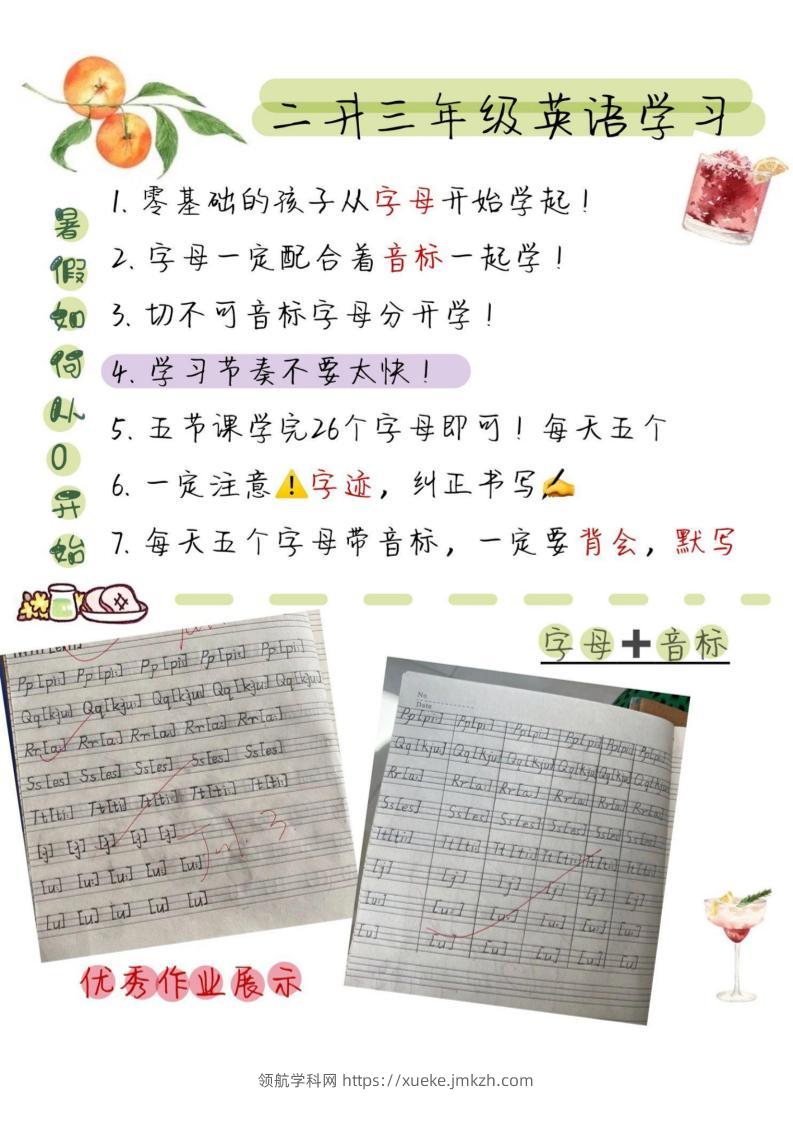 二升三年级英语学习
暑假如何从0开始
1. 零基础的孩子从字母开始学起！
2. 字母一定配合着音标一起学！
3. 切不可音标字母分开学！
4. 学习节奏不要太快！
5. 五节课学完26个字母即可！每天五个
6. 一定注意⚠️字迹，纠正书写✍️
7. 每天五个字母带音标，一定要背会，默写
字母➕音标
Pp [pi:] Pp [pi:] Pp [pi:] Pp [pi:] Pp [pi:]
Qq [kju:] Qq [kju:] Qq [kju:] Qq [kju:] Qq [kju:]
Rr [a:] Rr [a:] Rr [a:] Rr [a:] Rr [a:]
Ss [es] Ss [es] Ss [es] Ss [es] Ss [es]
Tt [ti:] Tt [ti:] Tt [ti:] Tt [ti:] Tt [ti:]
[j] [j] [j] [j] [j]
[u:] [u:] [u:] [u:] [u:]
[u] [u] [u] [u] [u]
No.
Date
Pp [pi:] Pp [pi:] Pp [pi:] Pp [pi:] Pp [pi:] Pp [pi:]
Qq [kju:] Qq [kju:] Qq [kju:] Qq [kju:] Qq [kju:] Qq [kju:]
Rr [a:] Rr [a:] Rr [a:] Rr [a:] Rr [a:] Rr [a:]
Ss [es] Ss [es] Ss [es] Ss [es] Ss [es] Ss [es]
Tt [ti:] Tt [ti:] Tt [ti:] Tt [ti:] Tt [ti:] Tt [ti:]
[j] [j] [j] [j] [j] [j]
[u:] [u:] [u:] [u:] [u:] [u:]
[u] [u] [u] [u] [u] [u]
优秀作业展示
领航学科网 https://xueke.jmkzh.com